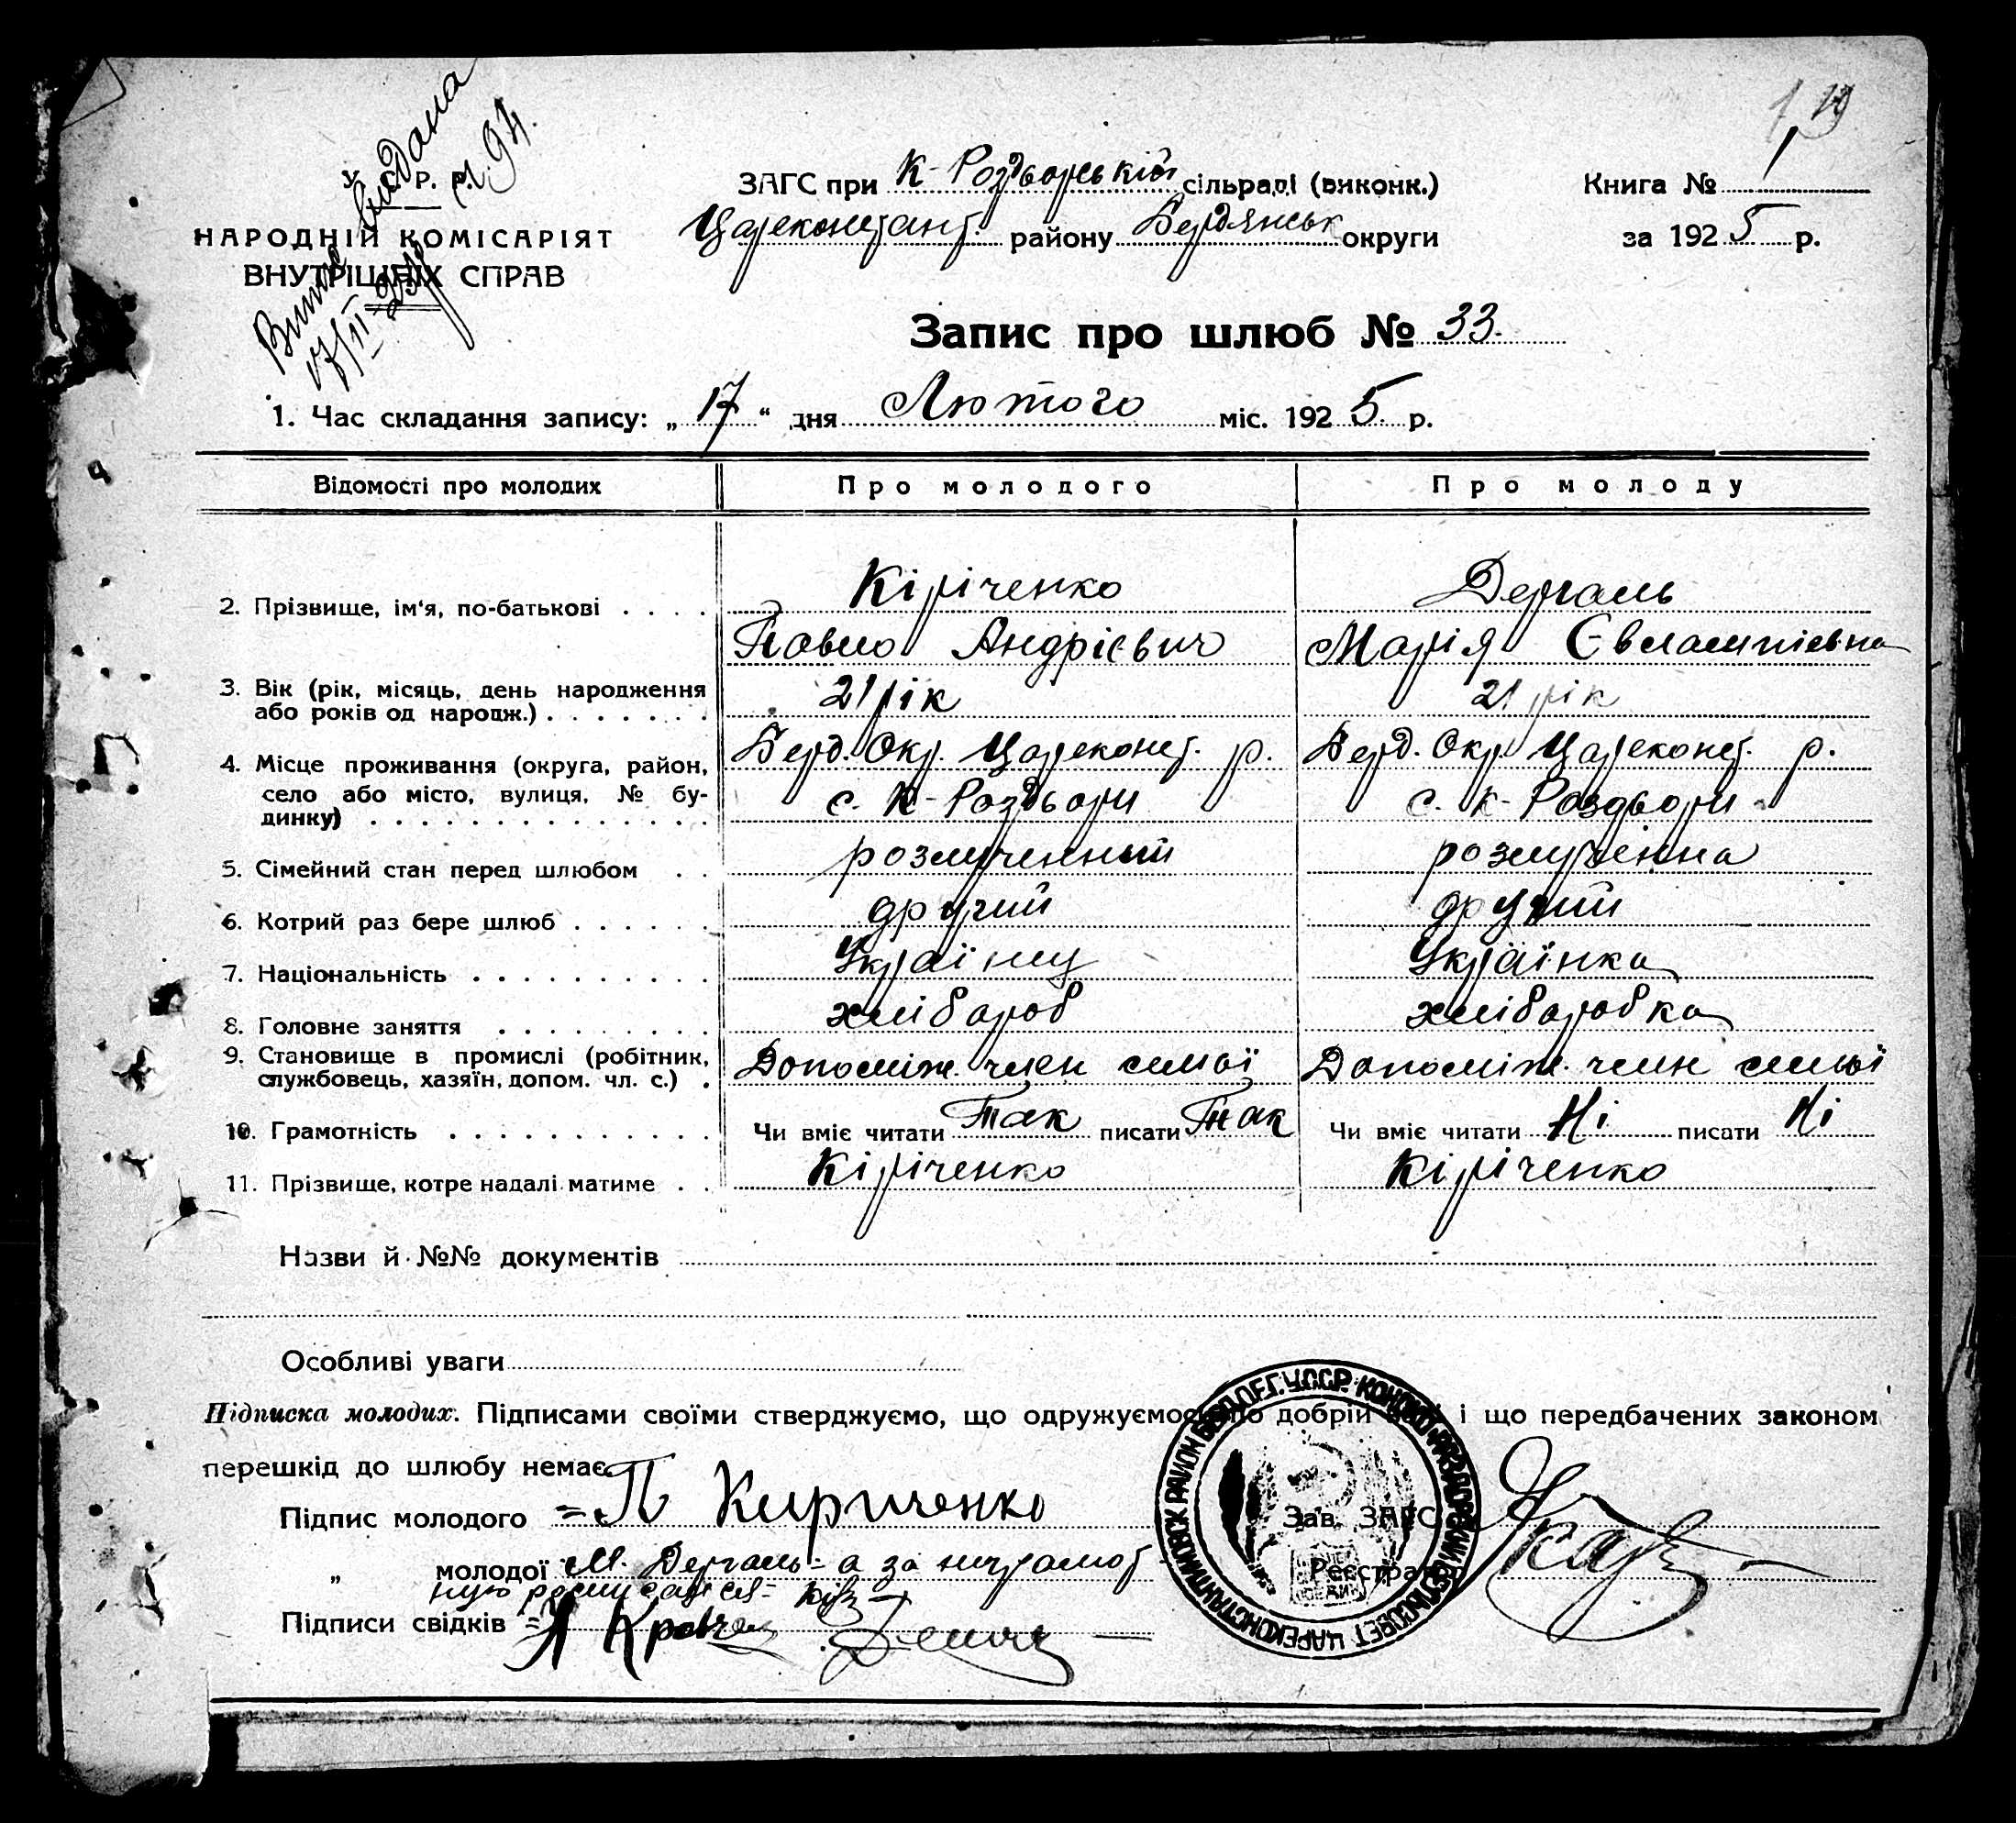 Виписъ видана
17/II-25р. № 94.
У. С. Р. Р.
НАРОДНІЙ КОМІСАРІЯТ
ВНУТРІШНІХ СПРАВ
ЗАГС при К-Роздорській сільраді (виконк.)
Цареконстант. району Бердянськ округи
Книга № 1
за 1925 р.
Запис про шлюб № 33.
1. Час складання запису: „17“ дня Лютого міс. 1925 р.
Відомості про молодих Про молодого Про молоду
2. Прізвище, ім'я, по-батькові . . . . Кіріченко Дергаль
Павло Андрієвич Марія Євлампієвна
3. Вік (рік, місяць, день народження 21 рік 21 рік
або років од народж.) . . . . . . .
4. Місце проживання (округа, район, Берд. Окр. Цареконст. р. Берд. Окр. Цареконст. р.
село або місто, вулиця, № бу- с. К-Роздори с. К-Роздори
динку) . . . . . . . . . . . . . .
5. Сімейний стан перед шлюбом . . розлученный розлученна
6. Котрий раз бере шлюб . . . . . . другий другий
7. Національність . . . . . . . . . . Українц Українка
8. Головне заняття . . . . . . . . . хлібароб хлібаробка
9. Становище в промислі (робітник, Допоміж. член семьї Допоміж. член семьї
службовець, хазяїн, допом. чл. с.) .
10. Грамотність . . . . . . . . . . . Чи вміє читати Так писати Так Чи вміє читати Ні писати Ні
11. Прізвище, котре надалі матиме . . Кіріченко Кіріченко
Назви й №№ документів
Особливі уваги
Підписка молодих. Підписами своїми стверджуємо, що одружуємось по добрій волі і що передбачених законом
перешкід до шлюбу немає.
Підпис молодого = П Кириченко
„ молодої М. Дергаль - а за неграмот
ную росписался-
Підписи свідків =
Зав. ЗАГС
Реєстратор
ЦАРЕКОНСТАНТИНОВСК РАЙОН БЕРД. ОКР. У.С.С.Р.